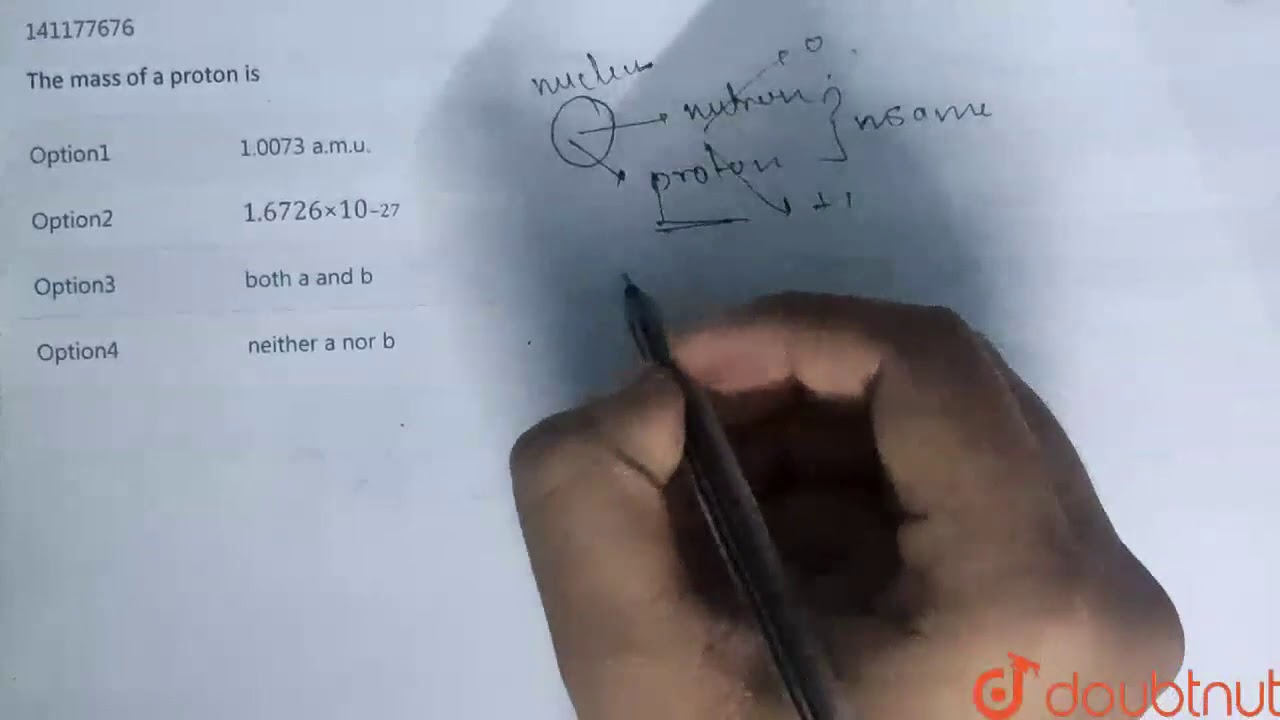 141177676
The mass of a proton is
Option1 1.0073 a.m.u.
Option2 1.6726×10-27
Option3 both a and b
Option4 neither a nor b
nucleus
0
proton
+1
doubtnut